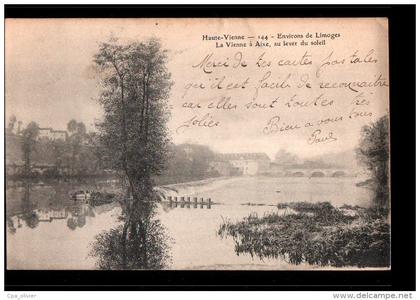 Haute-Vienne — 144 - Environs de Limoges
La Vienne à Aixe, au lever du soleil
Merci de tes cartes postales
qu'il est facile de reconnaitre
car elles sont toutes très
jolies
Bien a vous tous
Paul
Cap_olivier
www.delcampe.net